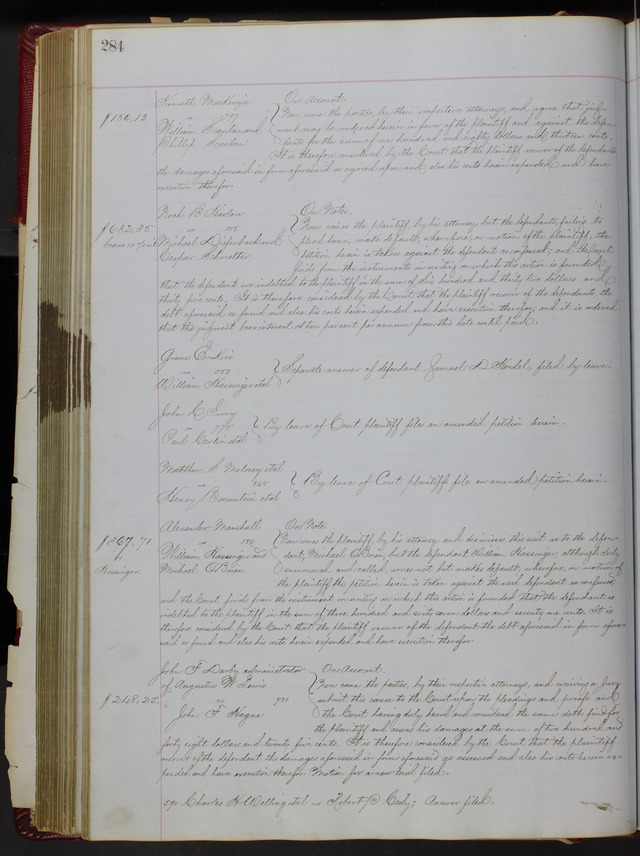 284
Kenneth MacKenzie On Account.
$180,13 vs 799 Now come the parties, by their respective attorneys, and agree that judg-
William Scanlan and ment may be rendered herein in favor of the plaintiff and against the defen-
Phillip Scanlan dants for the sum of one hundred and eighty dollars and thirteen cents.
It is therefore considered by the Court that the plaintiff recover of the defendants
the damages aforesaid in form aforesaid as agreed upon and also his costs herein expended and have
execution therefor.
Noah B Harlow On Note.
$632,35 vs Now comes the plaintiff, by his attorney, but the defendants, failing to
Michael Diefenbach and plead herein, make default, wherefore, on motion of the plaintiff, the
Caspar Schnetter petition herein is taken against the defendants as confessed; and the Court
finds from the instrument in writing on which this action is founded,
that the defendants are indebted to the plaintiff in the sum of six hundred and thirty two dollars and
thirty five cents. It is therefore considered by the Court that the plaintiff recover of the defendants the
debt aforesaid so found and also his costs herein expended and have execution therefor; and it is ordered
that this judgment bear interest at ten per cent per annum from this date until paid.
vs
William Hassinger et al Separate answer of defendant Samuel D. Hendel, filed by leave.
John C Ivory
vs 775 By leave of Court plaintiff files an amended petition herein.
Paul Carlin et al
Matthew S. Moloney et al
vs By leave of Court plaintiffs file an amended petition herein.
Henry et al
Alexander Marshall On Note.
$367,71 vs Now comes the plaintiff, by his attorney and dismisses this suit as to the defen-
William Hassinger and dant, Michael O'Brien, but the defendant William Hassinger, although duly
Hassinger. Michael O'Brien summoned and called, comes not but makes default; wherefore, on motion of
the plaintiff, the petition herein is taken against the said defendant as confessed,
and the Court finds from the instrument in writing on which this action is founded that the defendant is
indebted to the plaintiff in the sum of three hundred and sixty seven dollars and seventy one cents. It is
therefore considered by the Court that the plaintiff recover of the defendant the debt aforesaid in form afore-
said so found and also his costs herein expended and have execution therefor.
John F Darby administrator On Account.
of Augustus W Lewis Now come the parties, by their respective attorneys, and waiving a jury
$248,25. vs 781 submit this cause to the Court upon the pleadings and proofs and
John F Hague the Court having duly heard and considered the same doth find for
the plaintiff and assess his damages at the sum of two hundred and
forty eight dollars and twenty five cents. It is therefore considered by the Court that the plaintiff
recover of the defendant the damages aforesaid in form aforesaid so assessed and also his costs herein ex-
pended and have execution therefor. Motion for a new trial filed.
590 Charles H Welling et al vs Robert Cady; Answer filed.